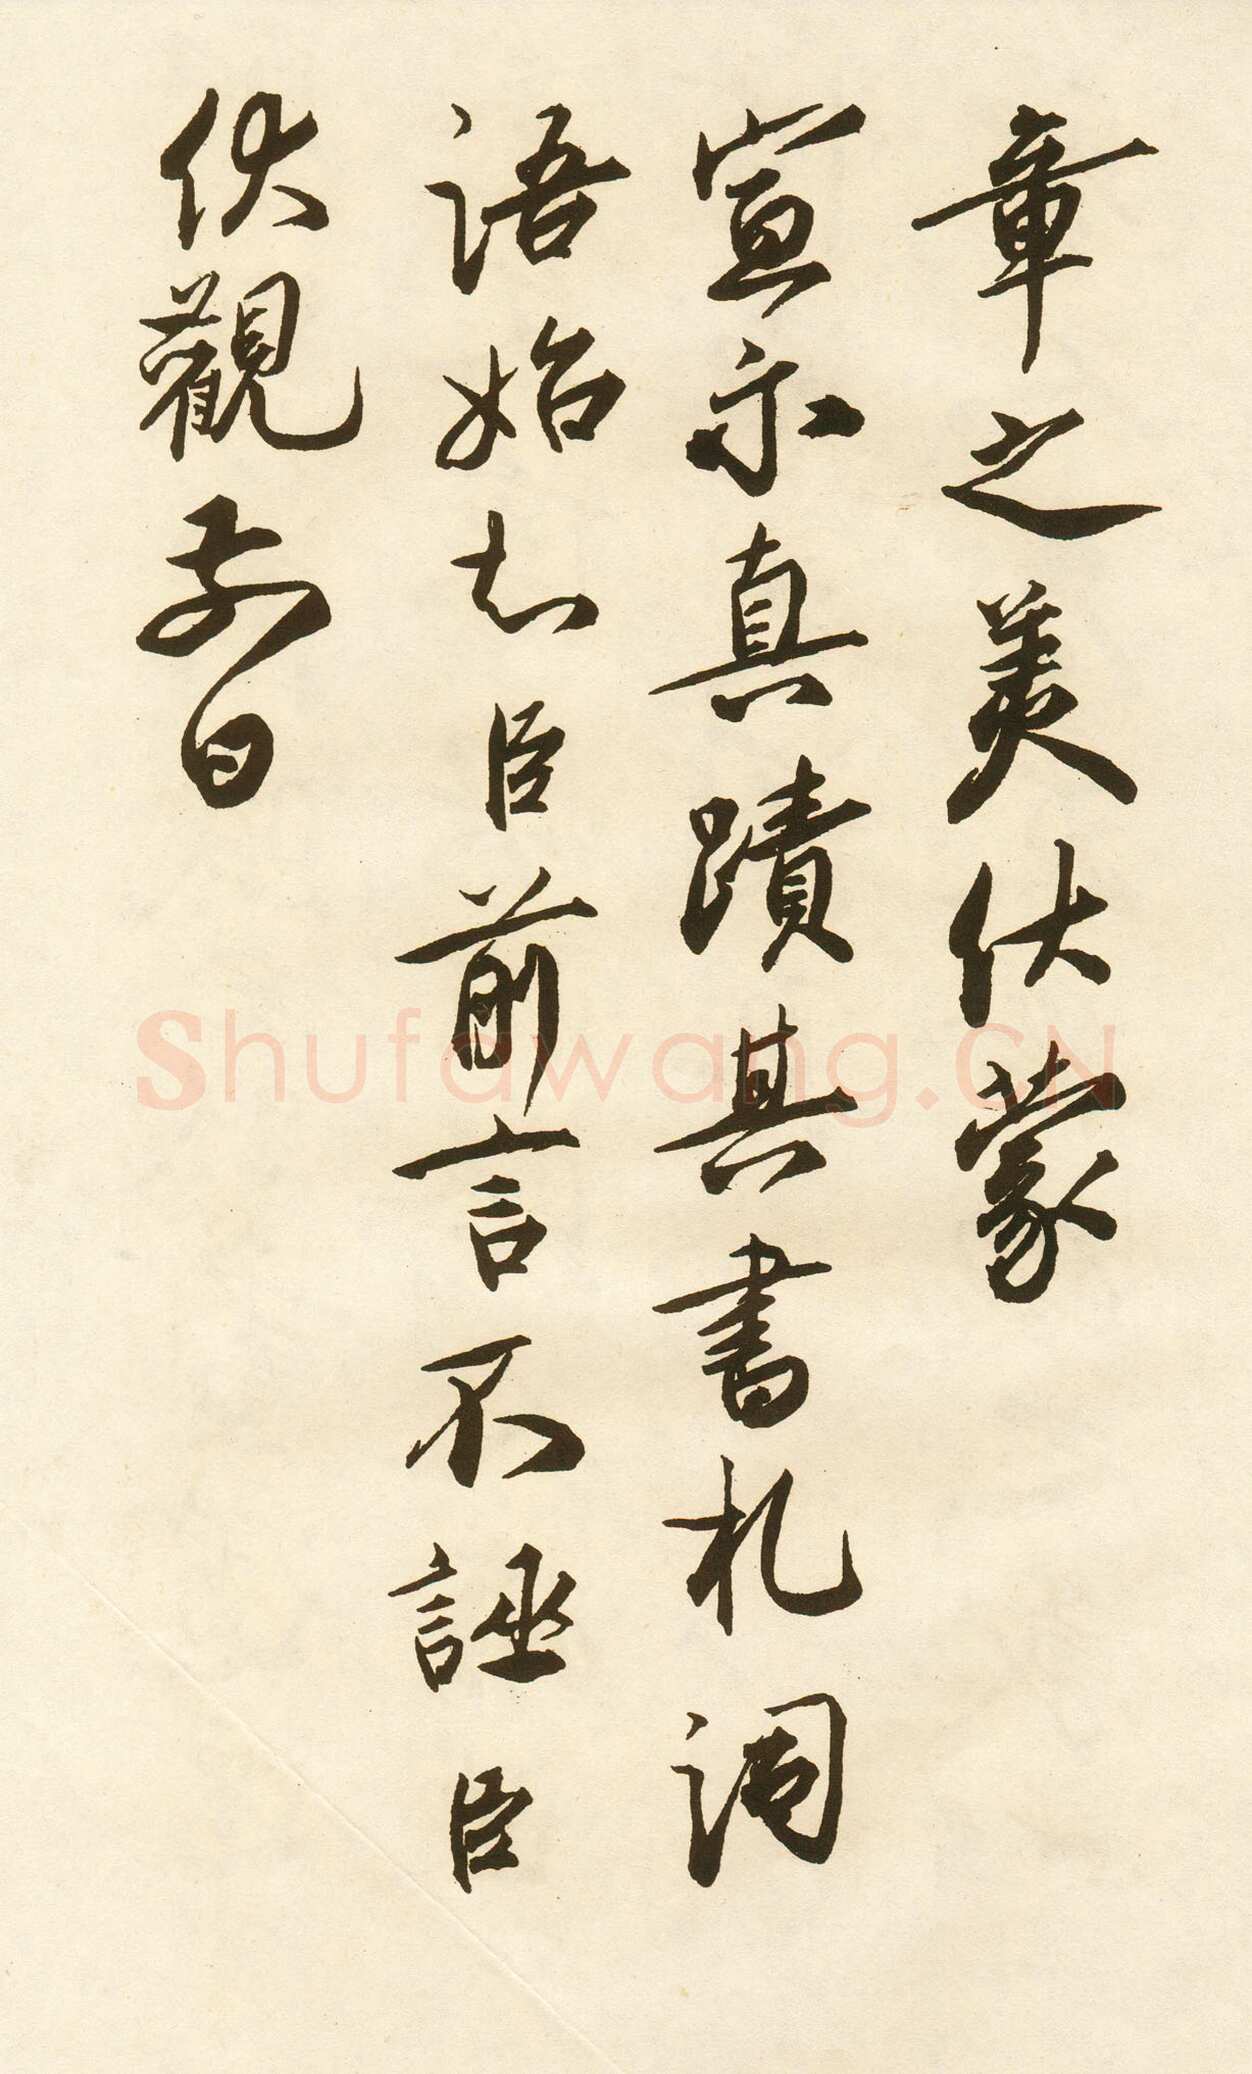 章之美伏蒙
宣示真蹟其書札詞
語始知臣前言不誣臣
伏觀日
Shufawang.CN